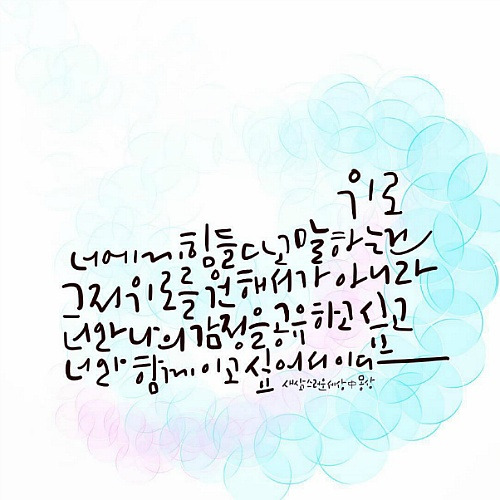 위로
너에게 힘들다고 말하는건
그저 위로를 원해서가 아니라
너와 나의 감정을 공유하고 싶고
너와 함께이고 싶어서이다
새삼스러운세상中 몽상